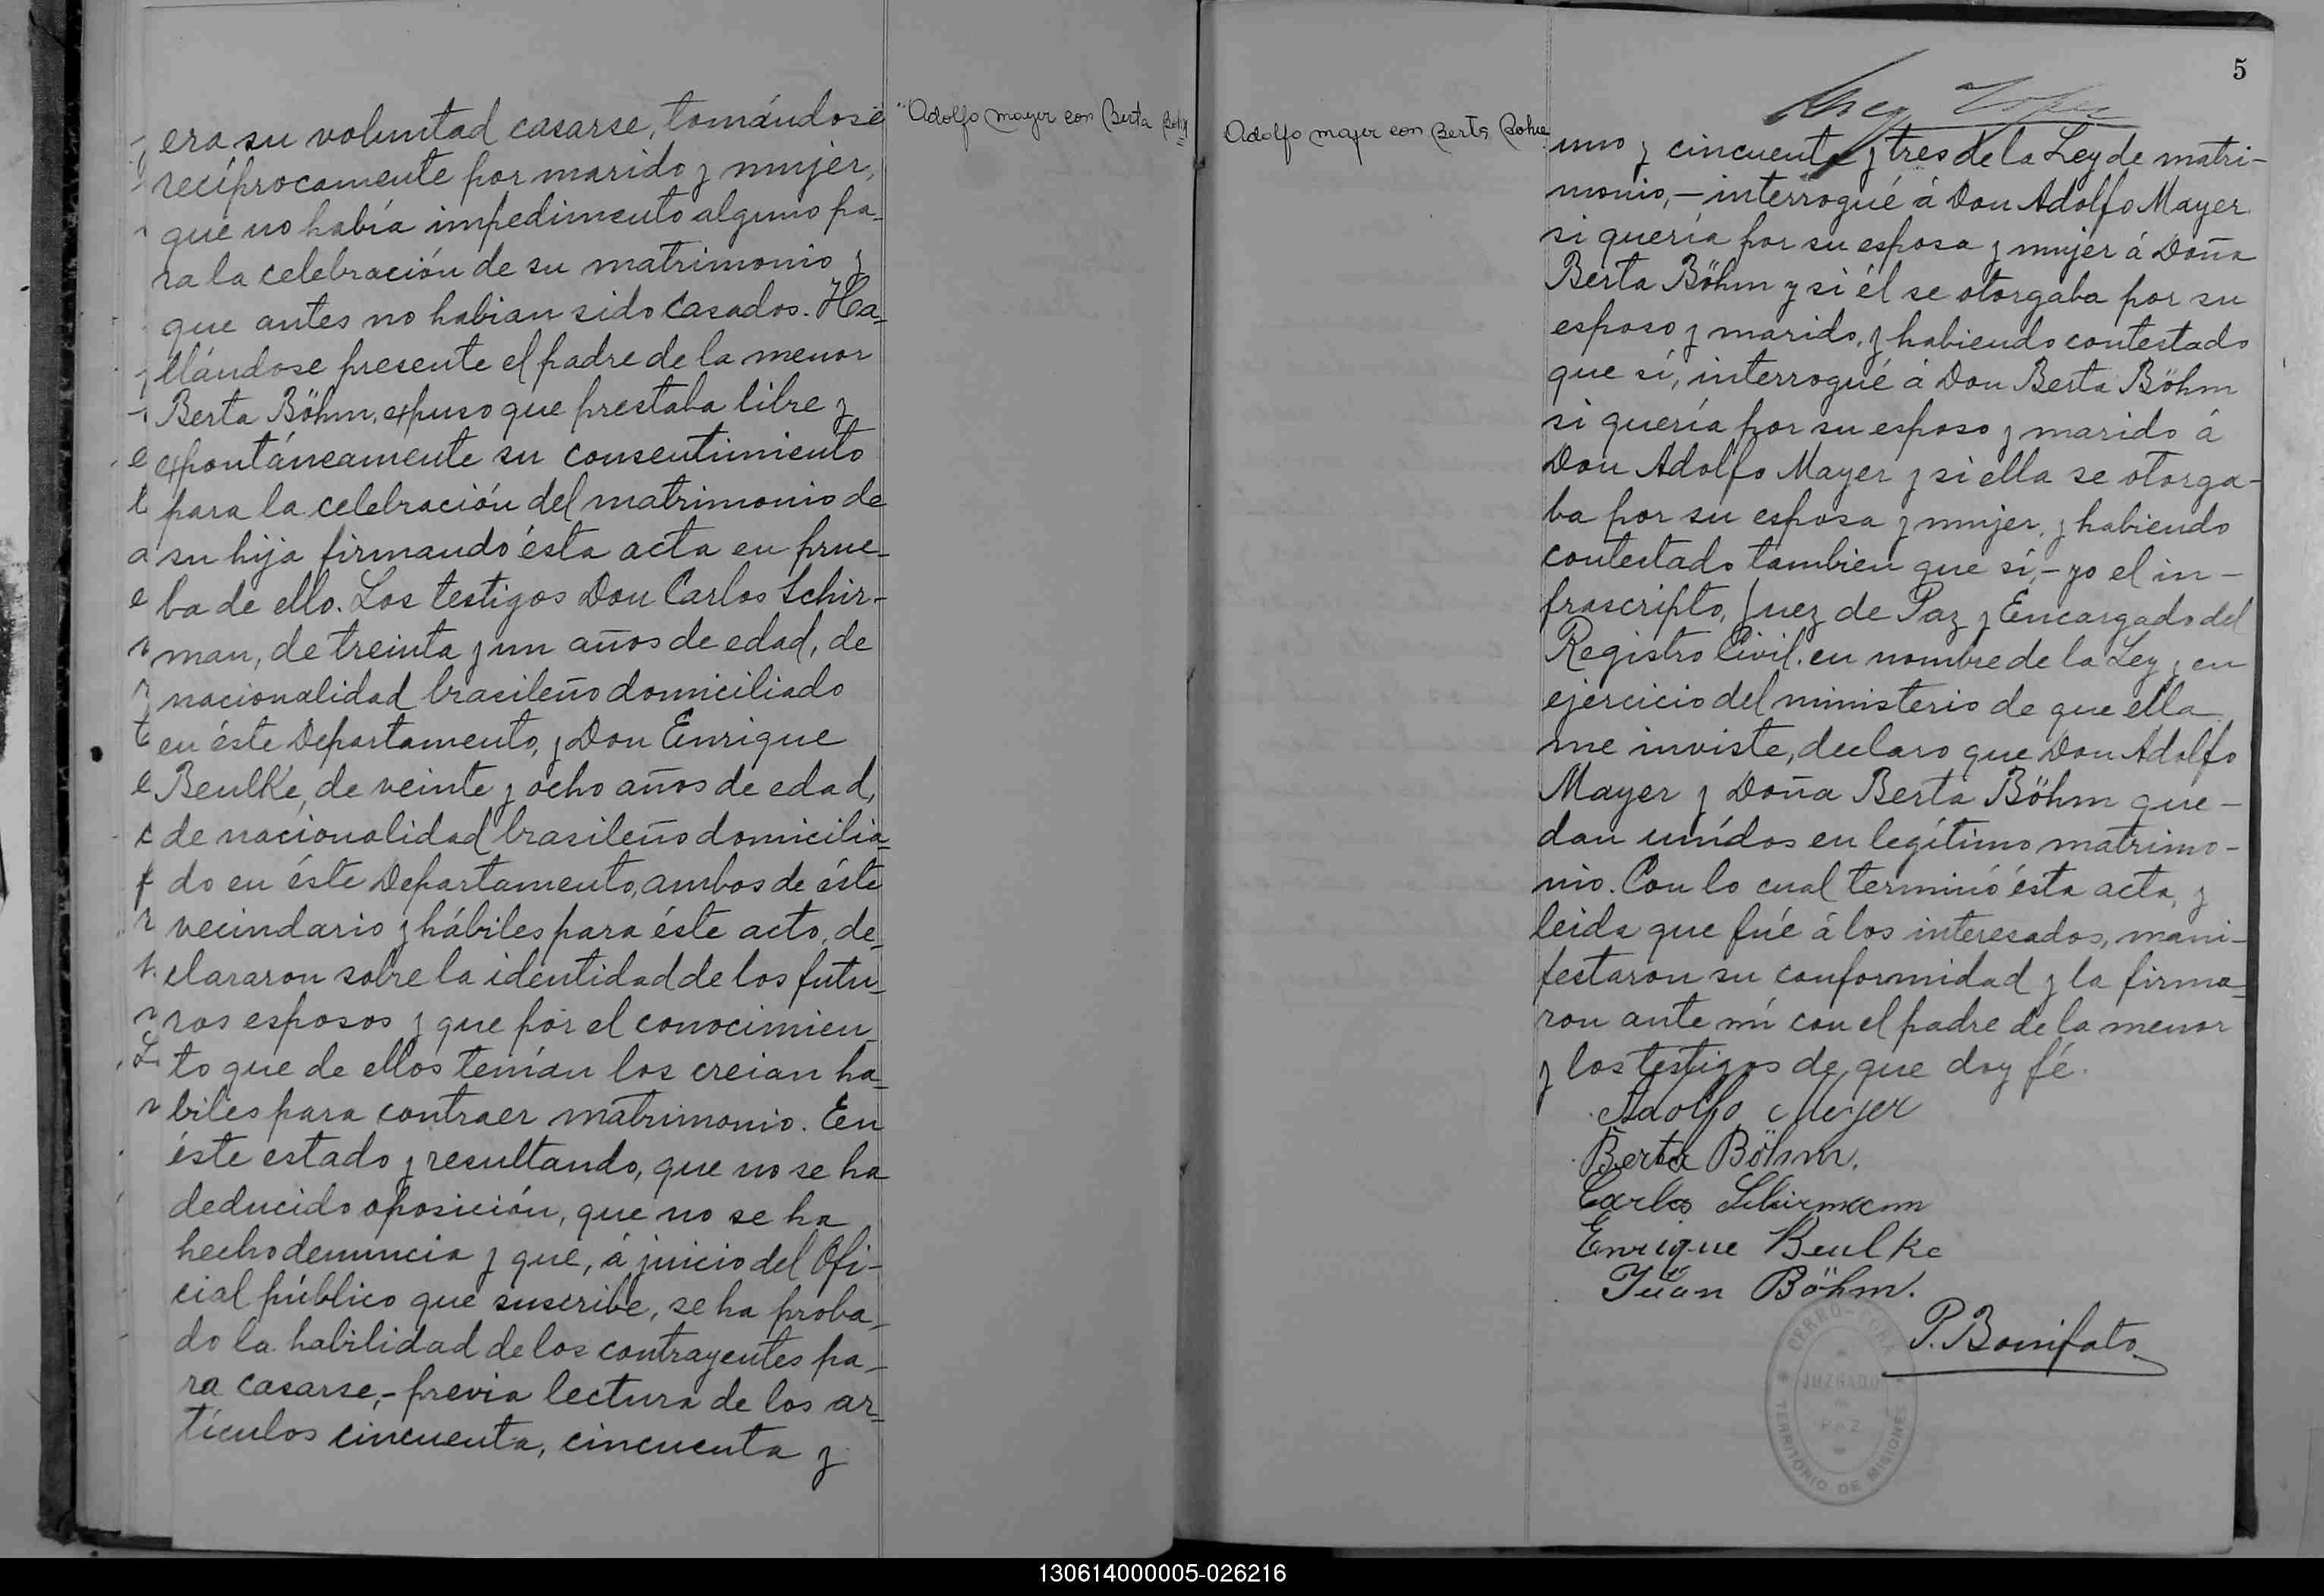 era su voluntad casarse, tomándose
recíprocamente por marido y mujer,
que no había impedimento alguno pa-
ra la celebración de su matrimonio y
que antes no habian sido casados. Ha-
llándose presente el padre de la menor
Berta Böhm, expuso que prestaba libre y
expontáneamente su consentimiento
para la celebración del matrimonio de
su hija firmando ésta acta en prue-
ba de ello. Los testigos Don Carlos Schir-
man, de treinta y un años de edad, de
nacionalidad brasileño domiciliado
en éste Departamento, y Don Enrique
Beulke, de veinte y ocho años de edad,
de nacionalidad brasileño domicilia-
do en éste Departamento, ambos de éste
vecindario y hábiles para éste acto, de-
clararon sobre la identidad de los futu-
ros esposos y que por el conocimien-
to que de ellos tenían los creian há-
biles para contraer matrimonio. En
éste estado y resultando, que no se ha
deducido oposición, que no se ha
hecho denuncia y que, á juicio del Ofi-
cial público que suscribe, se ha proba-
do la habilidad de los contrayentes pa-
ra casarse,- previa lectura de los ar-
tículos cincuenta, cincuenta y
Adolfo mayer con Berta
5
Adolfo mayer con Berta
uno y cincuenta y tres de la Ley de matri-
monio,- interrogué á Don Adolfo Mayer
si quería por su esposa y mujer á Doña
Berta Böhm y si él se otorgaba por su
esposo y marido, y habiendo contestado
que sí, interrogué á Don Berta Böhm
si quería por su esposo y marido á
Don Adolfo Mayer y si ella se otorga-
ba por su esposa y mujer, y habiendo
contestado tambien que sí,- yo el in-
frascripto, Juez de Paz y Encargado del
Registro Civil. en nombre de la Ley y en
ejercicio del ministerio de que ella
me inviste, declaro que Don Adolfo
Mayer y Doña Berta Böhm que-
dan unídos en legítimo matrimo-
nio. Con lo cual terminó ésta acta, y
leida que fué á los interesados, mani-
festaron su conformidad y la firma-
ron ante mí con el padre de la menor
y los testigos de que doy fé.
Adolfo Meyer
Berta Böhm.
Carlos Schirmann
Enrique Beulke
Juan Böhm.
P. Bonifato
CERRO-CORÁ
JUZGADO
DE
PAZ
TERRITORIO DE MISIONES
130614000005-026216